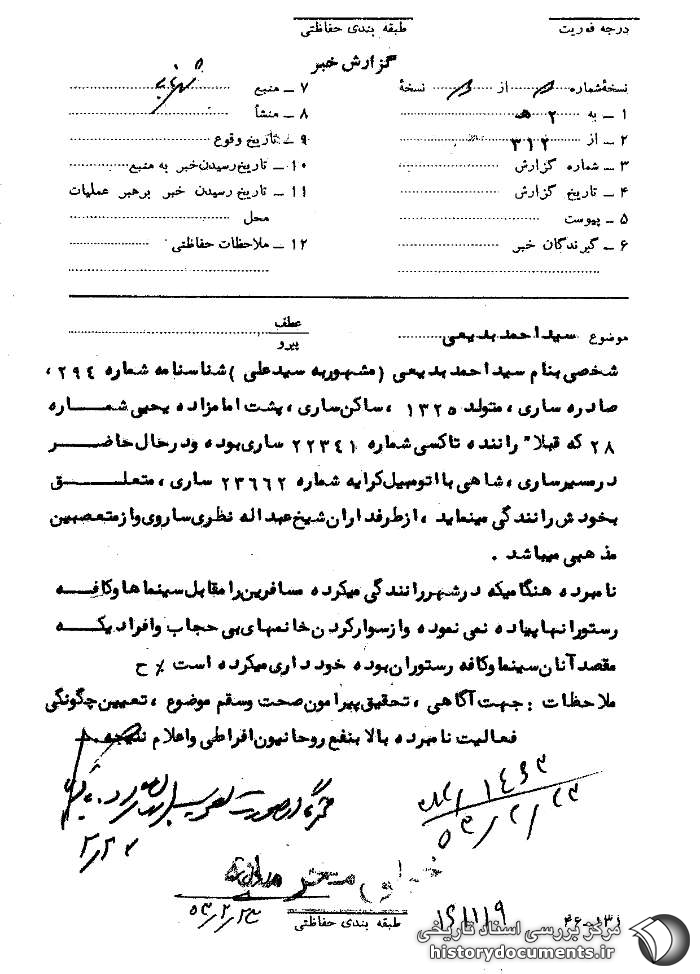 درجه فوریت
طبقه بندی حفاظتی
گزارش خبر
نسخهٔ شماره از نسخهٔ
۱ ـ به ۲ هـ
۲ ـ از ۳۱۲
۳ ـ شماره گزارش
۴ ـ تاریخ گزارش
۵ ـ پیوست
۶ ـ گیرندگان خبر
۷ ـ منبع
۸ ـ منشأ
۹ ـ تاریخ وقوع
۱۰ ـ تاریخ رسیدن خبر به منبع
۱۱ ـ تاریخ رسیدن خبر برهبر عملیات
محل
۱۲ ـ ملاحظات حفاظتی
موضوع سید احمد بدیعی
عطف
پیرو
شخصی بنام سید احمد بدیعی (مشهور به سید علی) شناسنامه شماره ۲۹۴،
صادره ساری، متولد ۱۳۲۵، ساکن ساری، پشت امامزاده یحیی شماره
۲۸ که قبلا" راننده تاکسی شماره ۲۲۳۴۱ ساری بوده ودرحال حاضر
درمسیر ساری، شاهی با اتومبیل کرایه شماره ۲۳۶۶۲ ساری، متعلق
بخودش رانندگی مینماید، ازطرفداران شیخ عبداله نظری ساروی وازمتعصبین
مذهبی میباشد.
نامبرده هنگامیکه درشهر رانندگی میکرده مسافرین را مقابل سینماها وکافه
رستورانها پیاده نمی نموده وازسوارکردن خانمهای بی حجاب وافرادیکه
مقصد آنان سینما وکافه رستوران بوده خودداری میکرده است٪ ح
ملاحظات: جهت آگاهی، تحقیق پیرامون صحت وسقم موضوع، تعیین چگونگی
فعالیت نامبرده بالا بنفع روحانیون افراطی واعلام نتیجه.
۱۴۶۳
۵۳/۲/۲۳
۲/۲۲
۵۳/۲/۲۳
طبقه بندی حفاظتی
۴۶-۱۳۱
مرکز بررسی اسناد تاریخی
historydocuments.ir